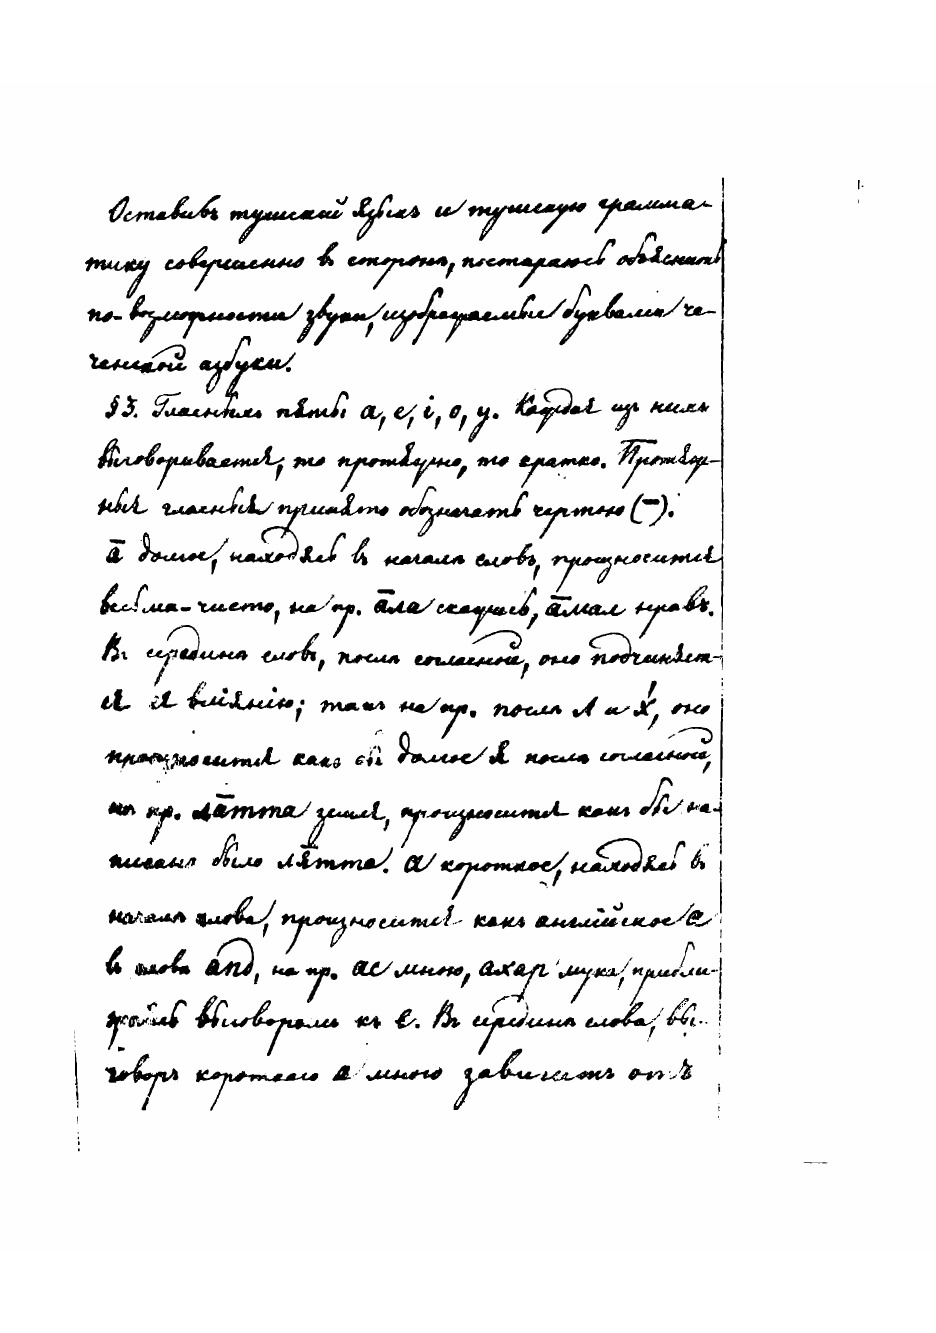 Оставивъ тушскій языкъ и тушскую грамма-
тику совершенно въ сторонѣ, постараюсь объяснить
по-возможности звуки, изображаемые буквами че-
ченской азбуки.
§3. Гласныхъ пять: а, е, і, о, у. Каждая изъ нихъ
выговаривается, то протяжно, то кратко. Протяж-
ныя гласныя принято обозначать чертою (–).
а̄ долгое, находясь въ началѣ словъ, произносится
весьма-чисто, на пр. а̄ла скажись, а̄мал нравъ.
Въ срединѣ словъ, послѣ согласной, оно подчиняет-
ся ея вліянію; такъ на пр. послѣ л и х̓, оно
произносится какъ бы долгое я послѣ согласной,
на пр. ла̄тта земля, произносится какъ бы на-
писано было ля̄тта. а короткое, находясь въ
началѣ слова, произносится какъ англійское а
въ словѣ and, на пр. ас мною, ахар мука, прибли-
жаясь выговоромъ къ е. Въ срединѣ слова, вы-
говоръ короткаго а много зависитъ отъ